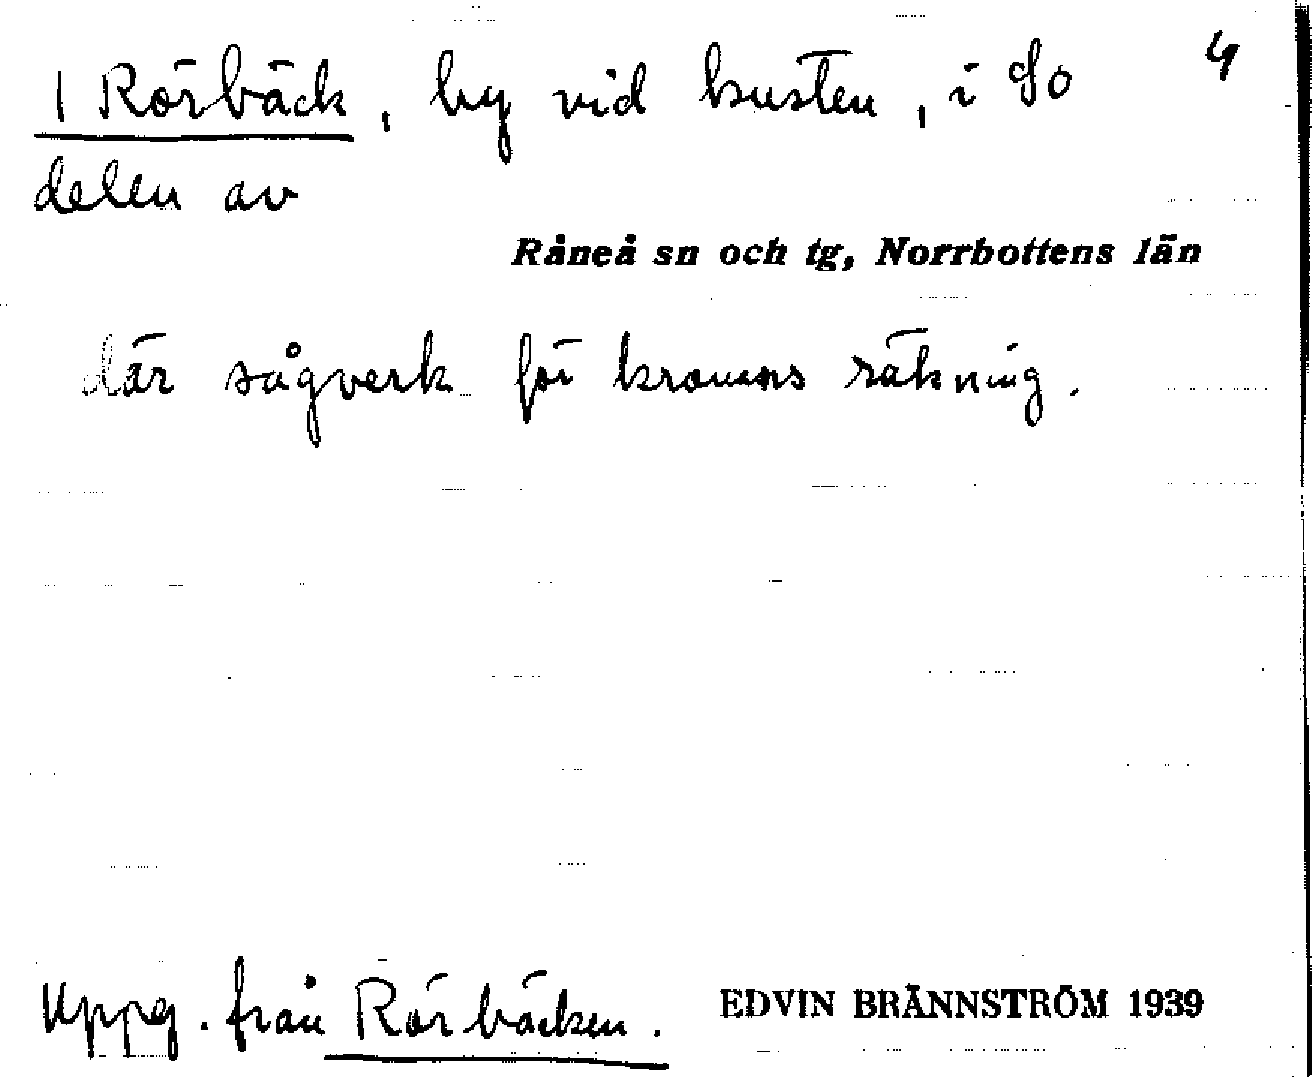 1 Rörbäck, by vid kusten, i So 4
delen av
Råneå sn och tg, Norrbottens län
där sågverk för kronans räkning.
Uppg. från Rörbäcken. EDVIN BRÄNNSTRÖM 1939